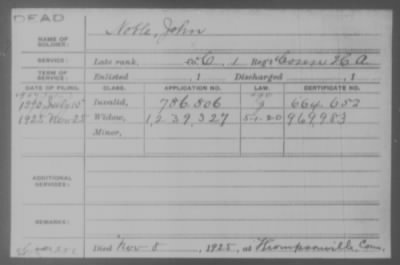 DEAD
NAME OF SOLDIER: Noble, John
SERVICE: Late rank, Co C, 1 Reg't Conn H A
TERM OF SERVICE: Enlisted , 1 Discharged , 1
DATE OF FILING. CLASS. APPLICATION NO. LAW. CERTIFICATE NO.
1890 July 15 Invalid, 786,806 664,652
1925 Nov 25 Widow, 1,239,327 5-1-20 969,983
Minor,
ADDITIONAL SERVICES:
REMARKS:
Died Nov 8, 1925, at Thompsonville, Conn.